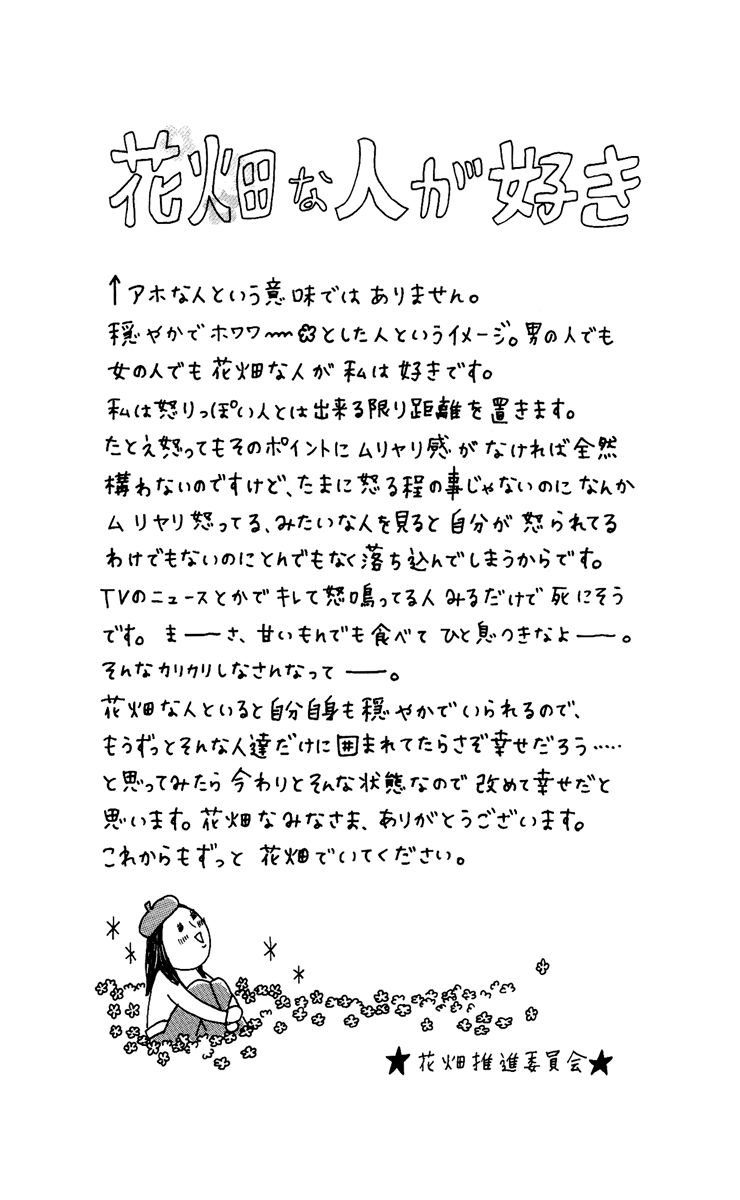 花畑な人が好き
↑アホな人という意味ではありません。
穏やかでホワワ〜〜✿とした人というイメージ。男の人でも
女の人でも花畑な人が私は好きです。
私は怒りっぽい人とは出来る限り距離を置きます。
たとえ怒ってもそのポイントにムリヤリ感がなければ全然
構わないのですけど、たまに怒る程の事じゃないのになんか
ムリヤリ怒ってる、みたいな人を見ると自分が怒られてる
わけでもないのにとんでもなく落ち込んでしまうからです。
TVのニュースとかでキレて怒鳴ってる人みるだけで死にそう
です。ま――さ、甘いもんでも食べてひと息つきなよ――。
そんなカリカリしなさんなって――。
花畑な人といると自分自身も穏やかでいられるので、
もうずっとそんな人達だけに囲まれてたらさぞ幸せだろう‥‥‥
と思ってみたら今わりとそんな状態なので改めて幸せだと
思います。花畑なみなさま、ありがとうございます。
これからもずっと花畑でいてください。
★花畑推進委員会★